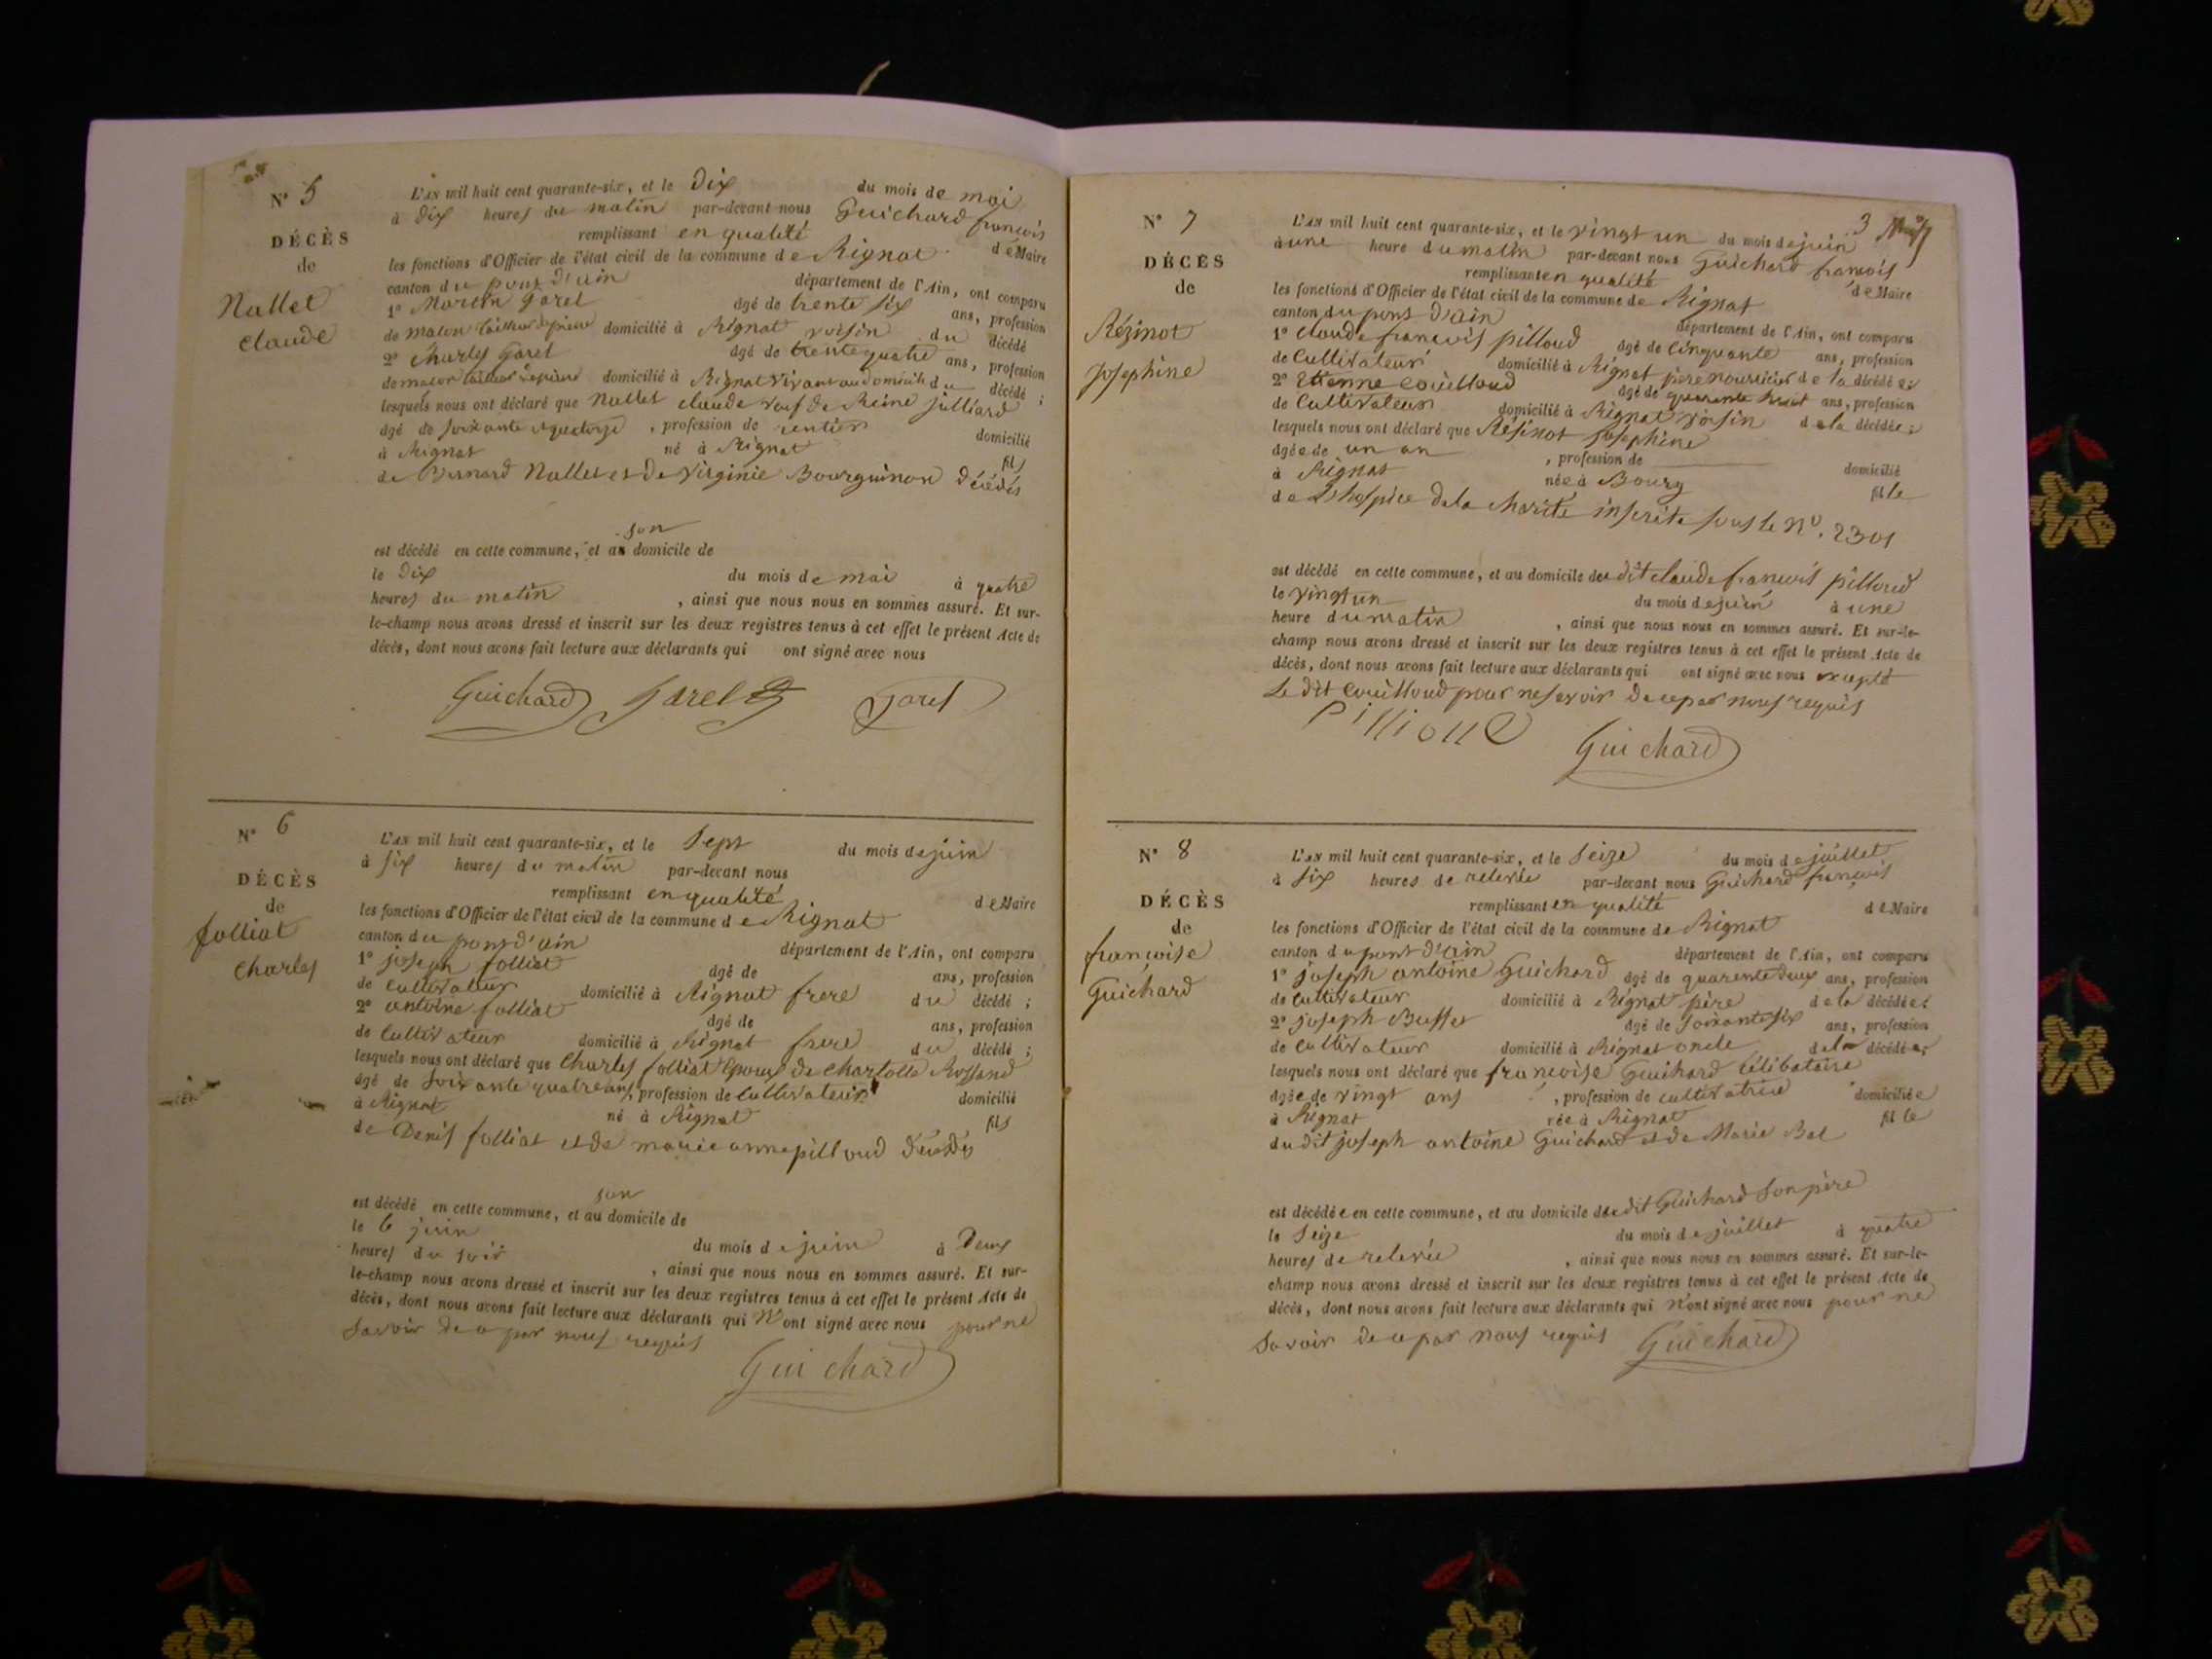 N° 5
DÉCÈS
de
Nallet
Claude
L'AN mil huit cent quarante-six, et le Dix du mois de mai
à Dix heures du matin par-devant nous Guichard françois
remplissant en qualité de Maire
les fonctions d'Officier de l'état civil de la commune de Rignat
canton du pont d'ain département de l'Ain, ont comparu
1° Martin Garel âgé de trente six ans, profession
de maçon tailleur de pierre domicilié à Rignat voisin du décédé
2° Charles Garel âgé de trente quatre ans, profession
de maçon tailleur de pierre domicilié à Rignat vivant au domicile du décédé ;
lesquels nous ont déclaré que Nallet claude veuf de Reine julliard
âgé de soixante et quatorze , profession de rentier domicilié
à Rignat né à Rignat fils
de Bernard Nallet et de Virginie Bourguinon décédés
son
est décédé en cette commune, et au domicile de
le Dix du mois de mai à quatre
heures du matin , ainsi que nous nous en sommes assuré. Et sur-
le-champ nous avons dressé et inscrit sur les deux registres tenus à cet effet le présent Acte de
décès, dont nous avons fait lecture aux déclarants qui ont signé avec nous
Guichard Garel Garel
N° 6
DÉCÈS
de
folliat
Charles
L'AN mil huit cent quarante-six, et le Sept du mois de juin
à six heures du matin par-devant nous
remplissant en qualité de Maire
les fonctions d'Officier de l'état civil de la commune de Rignat
canton du pont d'ain département de l'Ain, ont comparu
1° joseph folliat âgé de ans, profession
de cultivateur domicilié à Rignat frere du décédé ;
2° antoine folliat âgé de ans, profession
de cultivateur domicilié à Rignat frere du décédé ;
lesquels nous ont déclaré que Charles folliat Epoux de charlotte Rossand
âgé de soixante quatre ans, profession de cultivateur domicilié
à Rignat né à Rignat fils
de Denis folliat et de marie anne pilloud décédés
son
est décédé en cette commune, et au domicile de
le 6 juin du mois de juin à Deux
heures du soir , ainsi que nous nous en sommes assuré. Et sur-
le-champ nous avons dressé et inscrit sur les deux registres tenus à cet effet le présent Acte de
décès, dont nous avons fait lecture aux déclarants qui n'ont signé avec nous pour ne
savoir de ce par nous requis
Guichard
3
N° 7
DÉCÈS
de
Rézinot
Josephine
L'AN mil huit cent quarante-six, et le vingt un du mois de juin
à une heure du matin par-devant nous Guichard françois
remplissant en qualité de Maire
les fonctions d'Officier de l'état civil de la commune de Rignat
canton du pont d'ain département de l'Ain, ont comparu
1° claude françois pilloud âgé de cinquante ans, profession
de cultivateur domicilié à Rignat pere nouricier de la décédée ;
2° Etienne couilloud âgé de quarante huit ans, profession
de cultivateur domicilié à Rignat voisin de la décédée ;
lesquels nous ont déclaré que Résinot josephine
âgée de un an , profession de domicilié
à Rignat née à Bourg fille
de L'hospice de la charité inscrite sous le N°. 2301
est décédé en cette commune, et au domicile du dit claude françois pilloud
le vingt un du mois de juin à une
heure du matin , ainsi que nous nous en sommes assuré. Et sur-le-
champ nous avons dressé et inscrit sur les deux registres tenus à cet effet le présent Acte de
décès, dont nous avons fait lecture aux déclarants qui ont signé avec nous excepté
Le dit couilloud pour ne savoir de ce par nous requis
Pillioud Guichard
N° 8
DÉCÈS
de
françoise
Guichard
L'AN mil huit cent quarante-six, et le Seize du mois de juillet
à six heures de relevée par-devant nous Guichard françois
remplissant en qualité de Maire
les fonctions d'Officier de l'état civil de la commune de Rignat
canton du pont d'ain département de l'Ain, ont comparu
1° joseph antoine Guichard âgé de quarente deux ans, profession
de cultivateur domicilié à Rignat père de la décédée ;
2° joseph Buffet âgé de soixante six ans, profession
de cultivateur domicilié à Rignat oncle de la décédée ;
lesquels nous ont déclaré que françoise Guichard célibataire
âgée de vingt ans , profession de cultivatrice domiciliée
à Rignat née à Rignat fille
du dit joseph antoine Guichard et de Marie Bel
est décédée en cette commune, et au domicile du dit Guichard son père
le Seize du mois de juillet à quatre
heures de relevée , ainsi que nous nous en sommes assuré. Et sur-le-
champ nous avons dressé et inscrit sur les deux registres tenus à cet effet le présent Acte de
décès, dont nous avons fait lecture aux déclarants qui n'ont signé avec nous pour ne
savoir de ce par nous requis Guichard